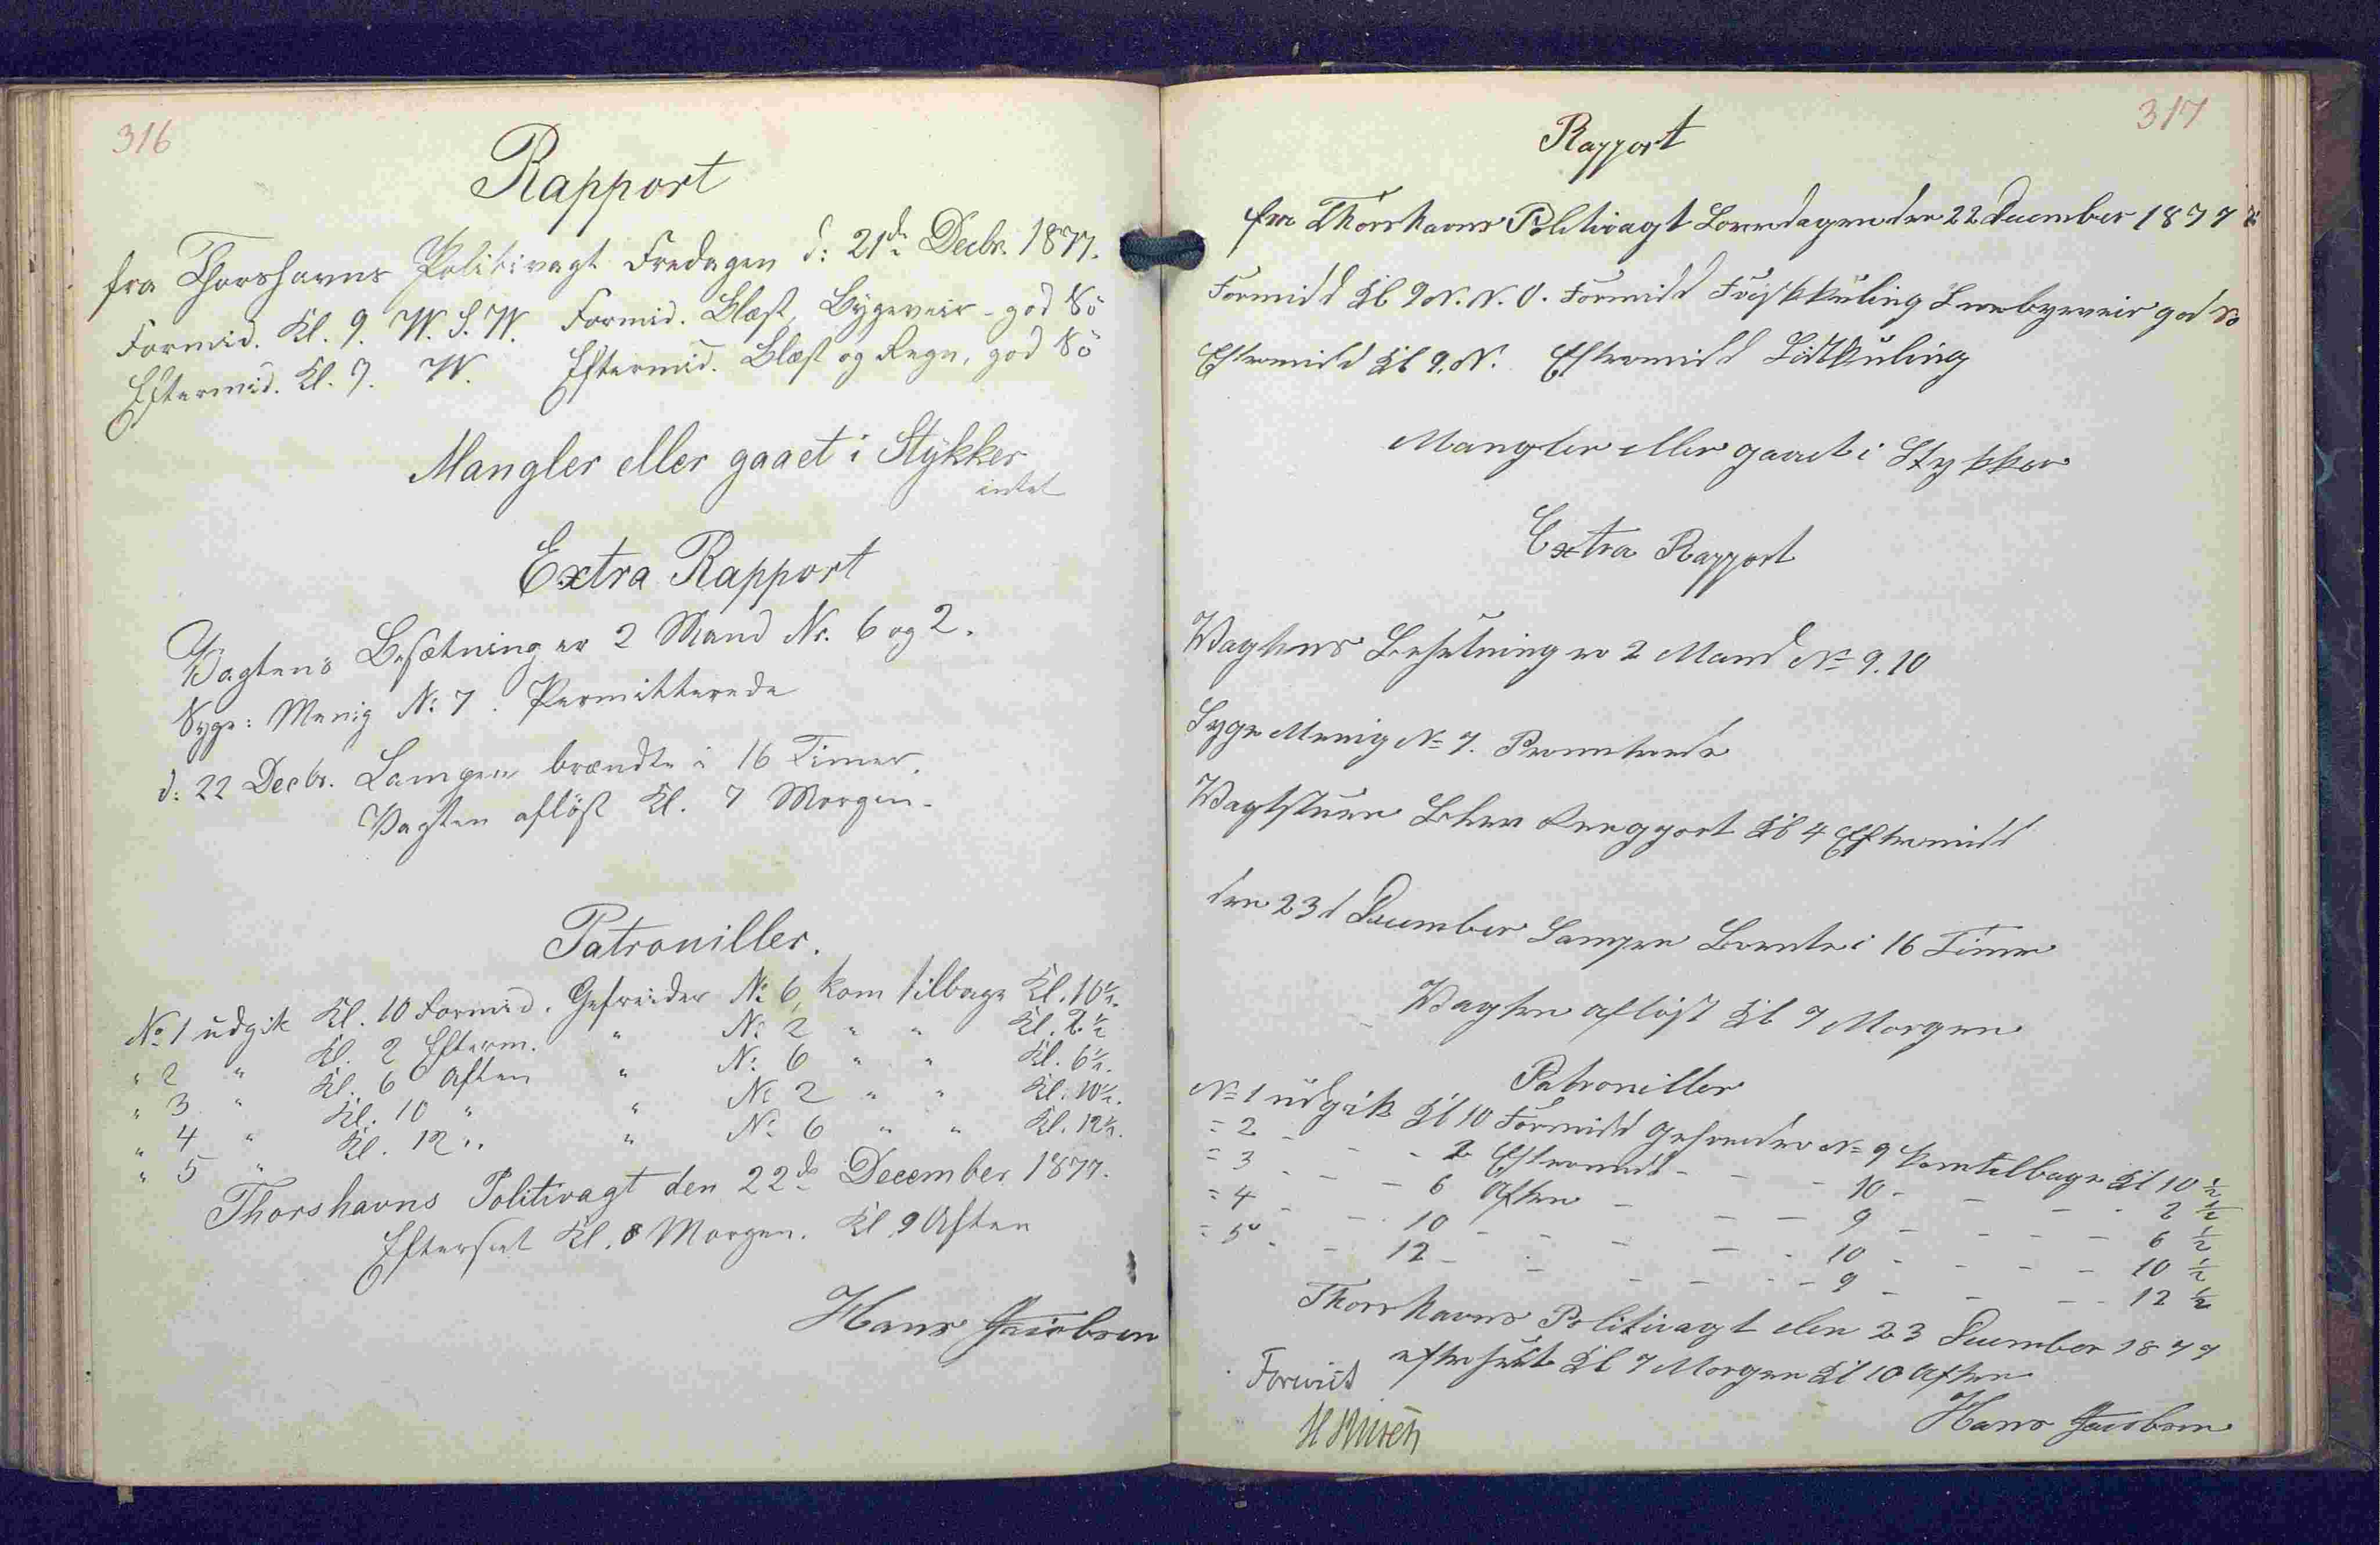 316
Rapport
fra Thorshavns Politivagt Fredagen d: 21de Decbr. 1877.
Formid. Kl. 9. W. S. W. Formid. Blæst, Bygeveir - god Sö
Eftermid. Kl. 9. W. Eftermid. Blæst og Regn, god Sö
Mangler eller gaaet i Stykker
intet
Extra Rapport
Vagtens Besætning er 2 Mand Nr. 6 og 2.
Syge: Menig No 7. Permitterede
d: 22 Decbr. Lampen brændte i 16 Timer.
Vagten aflöst Kl. 7 Morgen.
Patrouiller.
No 1 udgik Kl. 10 Formid. Gefreider No 6, kom tilbage Kl. 10½.
" 2 " Kl. 2 Efterm. " No 2 " " Kl. 2½
" 3 " Kl. 6 Aften " No 6 " " Kl. 6½.
" 4 " Kl. 10 " " No 2 " " Kl. 10½.
" 5 " Kl. 12 " " No 6 " " Kl. 12½.
Thorshavns Politivagt den 22de December 1877.
Eftersat Kl. 8 Morgen. Kl 9 Aften
Hans Jacobsen
317
Rapport
fra Thorshavns Politivagt Löverdagen den 22 December 1877
Formidd Kl 9 N. N. O. Formidd Friskkuling Sneebygeveir god Sö
Eftermidd Kl 9. N. Eftermidd Lidtkuling
Mangler eller gaaet i Stykker
Extra Rapport
Vagtens Besetning er 2 Mand No 9. 10
Syge Menig No 7.
Vagtstuen Blev Rengjort Kl 4 Eftermidd
den 23d December Lampen Brente i 16 Timer
Vagten aflöst Kl 7 Morgen
Patrouiller
No 1 udgik Kl 10 Formidd Gefreider No 9 komtilbage Kl 10 ½
= 2 - - - 2 Eftermidd - - - 10 - - - 2 ½
= 3 - - - 6 Aften - - - 9 - - - 6 ½
= 4 - - - 10 - - - - 10 - - - 10 ½
= 5 - - - 12 - - - - 9 - - - 12 ½
Thorshavns Politivagt den 23 December 1877
eftersat Kl 7 Morgen Kl 10 Aften
Hans Jacobsen
Foreviist